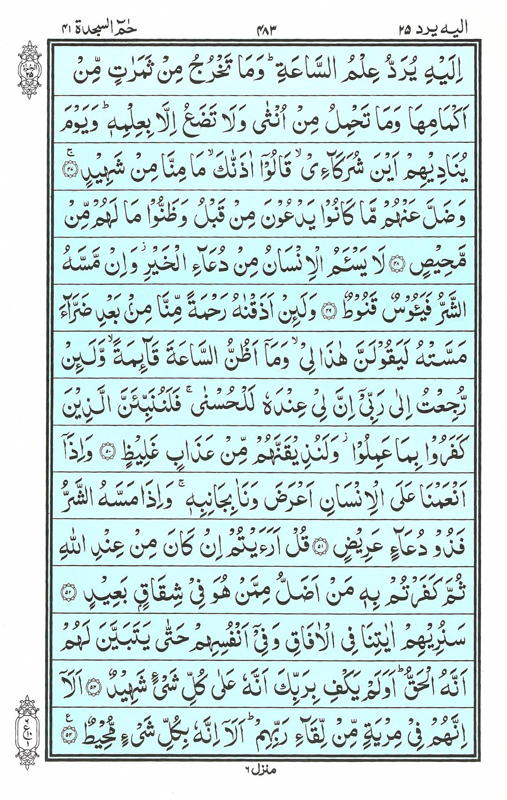 اليه يرد ٢٥ ٤٨٣ حٰمٓ السجدة ٤١
اِلَيْهِ يُرَدُّ عِلْمُ السَّاعَةِ ؕ وَمَا تَخْرُجُ مِنْ ثَمَرٰتٍ مِّنْ
اَكْمَامِهَا وَمَا تَحْمِلُ مِنْ اُنْثٰى وَلَا تَضَعُ اِلَّا بِعِلْمِهٖ ؕ وَيَوْمَ
يُنَادِيْهِمْ اَيْنَ شُرَكَآءِىْ ۙ قَالُوْۤا اٰذَنّٰكَ ۙ مَا مِنَّا مِنْ شَهِيْدٍ ۚ ٤٧
وَضَلَّ عَنْهُمْ مَّا كَانُوْا يَدْعُوْنَ مِنْ قَبْلُ وَظَنُّوْا مَا لَهُمْ مِّنْ
مَّحِيْصٍ ٤٨ لَا يَسْـَٔمُ الْاِنْسَانُ مِنْ دُعَآءِ الْخَيْرِ ؗ وَاِنْ مَّسَّهُ
الشَّرُّ فَيَـُٔوْسٌ قَنُوْطٌ ٤٩ وَلَئِنْ اَذَقْنٰهُ رَحْمَةً مِّنَّا مِنْۢ بَعْدِ ضَرَّآءَ
مَسَّتْهُ لَيَقُوْلَنَّ هٰذَا لِىْ ۙ وَمَاۤ اَظُنُّ السَّاعَةَ قَآئِمَةً ۙ وَّلَئِنْ
رُّجِعْتُ اِلٰى رَبِّىْۤ اِنَّ لِىْ عِنْدَهٗ لَلْحُسْنٰى ۚ فَلَنُنَبِّئَنَّ الَّذِيْنَ
كَفَرُوْا بِمَا عَمِلُوْا ؗ وَلَنُذِيْقَنَّهُمْ مِّنْ عَذَابٍ غَلِيْظٍ ٥٠ وَاِذَاۤ
اَنْعَمْنَا عَلَى الْاِنْسَانِ اَعْرَضَ وَنَاٰ بِجَانِبِهٖ ۚ وَاِذَا مَسَّهُ الشَّرُّ
فَذُوْ دُعَآءٍ عَرِيْضٍ ٥١ قُلْ اَرَءَيْتُمْ اِنْ كَانَ مِنْ عِنْدِ اللّٰهِ
ثُمَّ كَفَرْتُمْ بِهٖ مَنْ اَضَلُّ مِمَّنْ هُوَ فِىْ شِقَاقٍۭ بَعِيْدٍ ٥٢
سَنُرِيْهِمْ اٰيٰتِنَا فِى الْاٰفَاقِ وَفِىْۤ اَنْفُسِهِمْ حَتّٰى يَتَبَيَّنَ لَهُمْ
اَنَّهُ الْحَقُّ ؕ اَوَلَمْ يَكْفِ بِرَبِّكَ اَنَّهٗ عَلٰى كُلِّ شَىْءٍ شَهِيْدٌ ٥٣ اَلَاۤ
اِنَّهُمْ فِىْ مِرْيَةٍ مِّنْ لِّقَآءِ رَبِّهِمْ ؕ اَلَاۤ اِنَّهٗ بِكُلِّ شَىْءٍ مُّحِيْطٌ ٥٤
منزل ٦